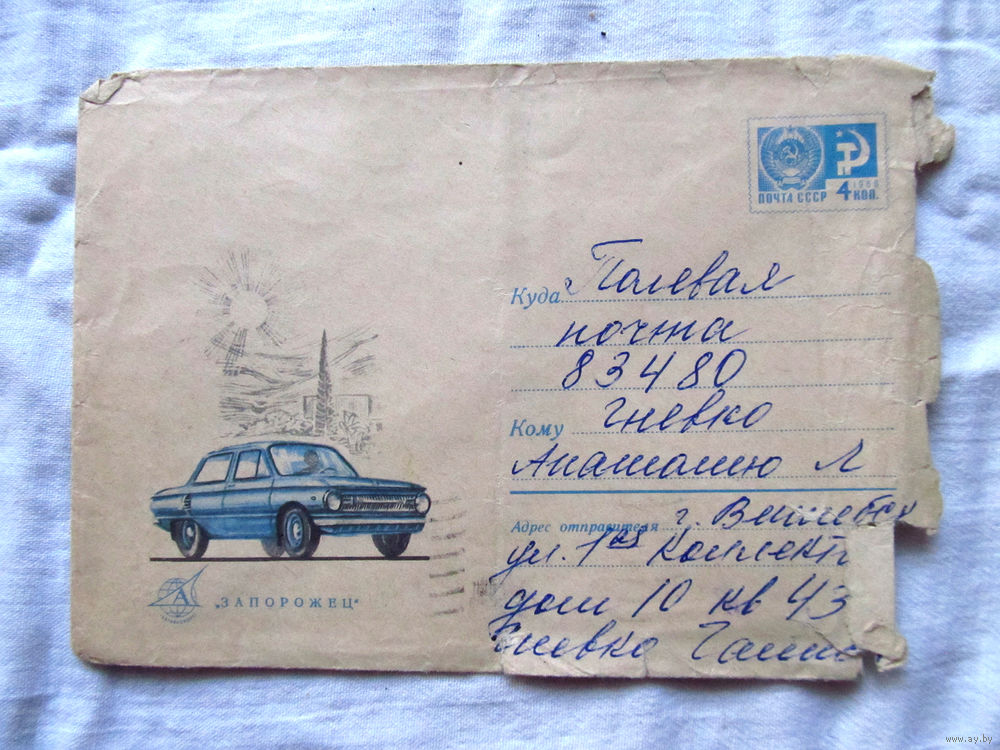 ПОЧТА СССР
4 КОП.
1966
Куда Полевая
почта
83480
Кому Гневко
Анатолию Л
Адрес отправителя г. Витебск
ул. 1ая Коллект
дом 10 кв 43
Гневко
„ЗАПОРОЖЕЦ“
www.ay.by